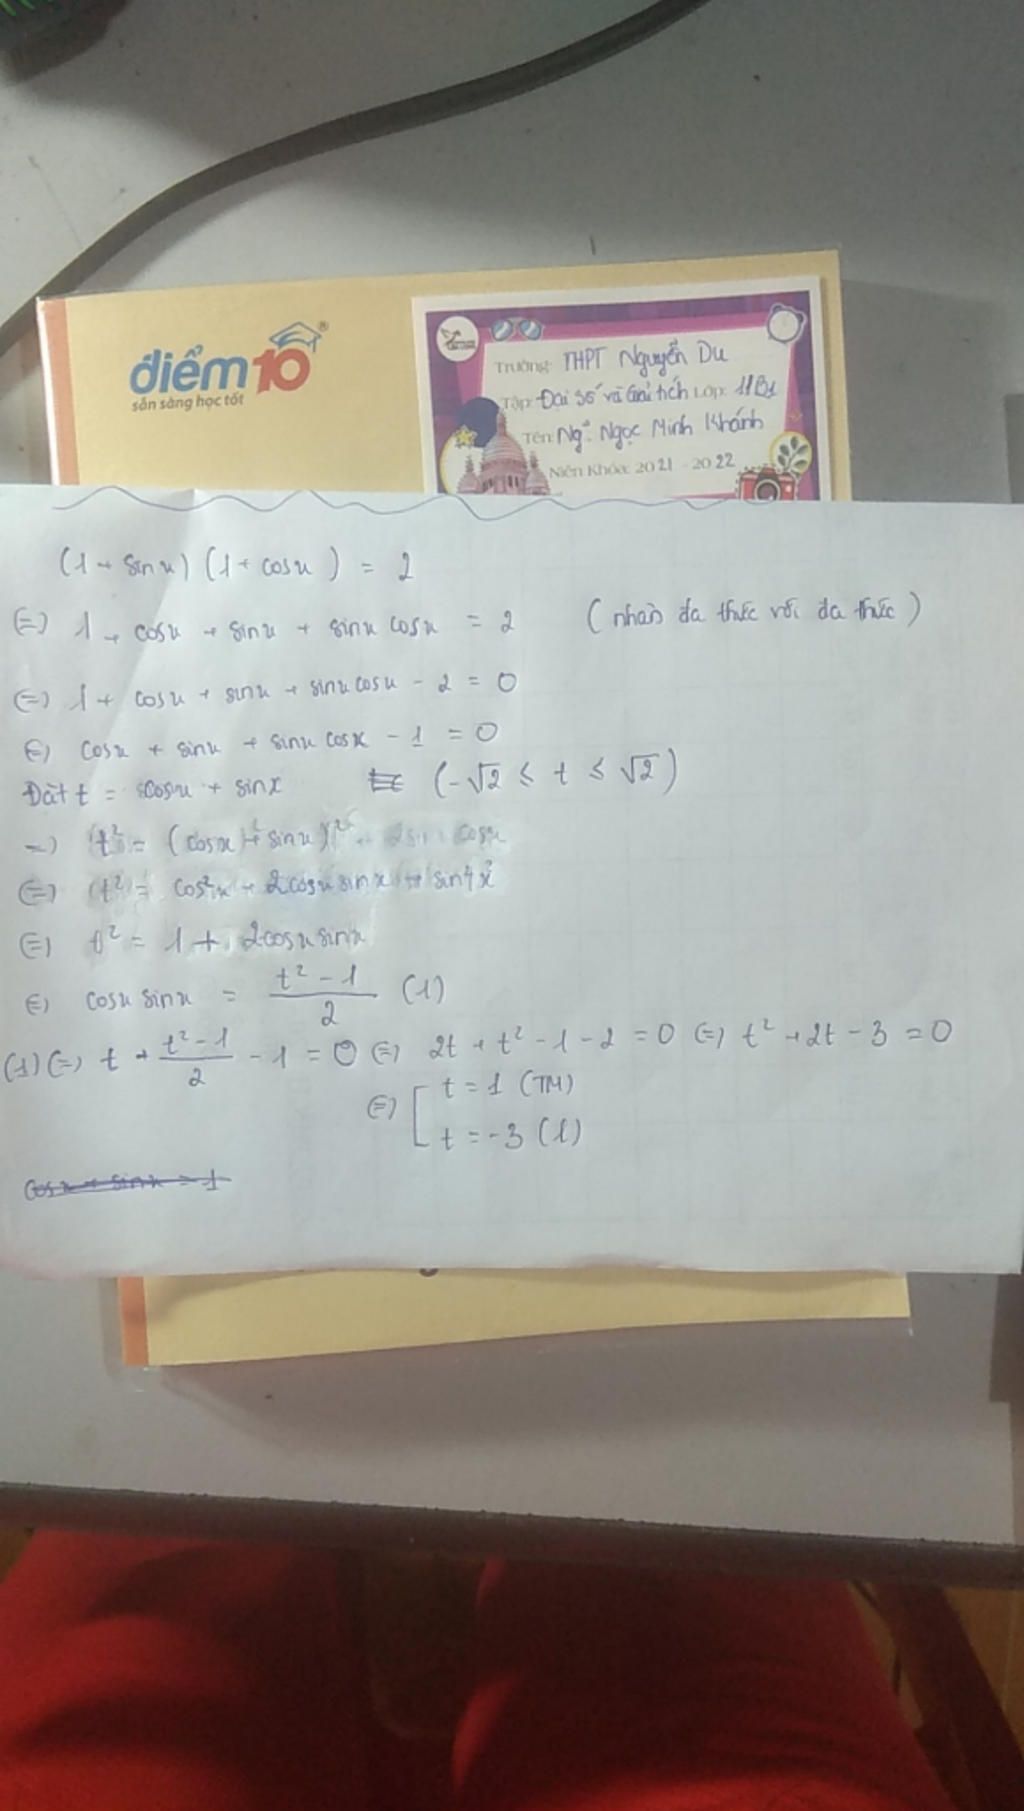 điểm10®
sẵn sàng học tốt
Trường: THPT Nguyễn Du
Tập: Đại số và Giải tích Lớp: 11B1
Tên: Ng. Ngọc Minh Khánh
Niên Khóa: 2021 - 2022
(1 + sinx) (1 + cosx) = 2
(=) 1 + cosx + sinx + sinx cosx = 2 (nhân đa thức với đa thức)
(=) 1 + cosx + sinx + sinx cosx - 2 = 0
(=) cosx + sinx + sinx cosx - 1 = 0
Đặt t = cosx + sinx (-√2 ≤ t ≤ √2)
=) t² = (cosx + sinx)²
(=) t² = cos²x + 2cosx sinx + sin²x
(=) t² = 1 + 2cosx sinx
(=) cosx sinx = (t² - 1)/2 (1)
(1) (=) t + (t² - 1)/2 - 1 = 0 (=) 2t + t² - 1 - 2 = 0 (=) t² + 2t - 3 = 0
(=) [ t = 1 (TM)
t = -3 (l)
cosx + sinx = 1